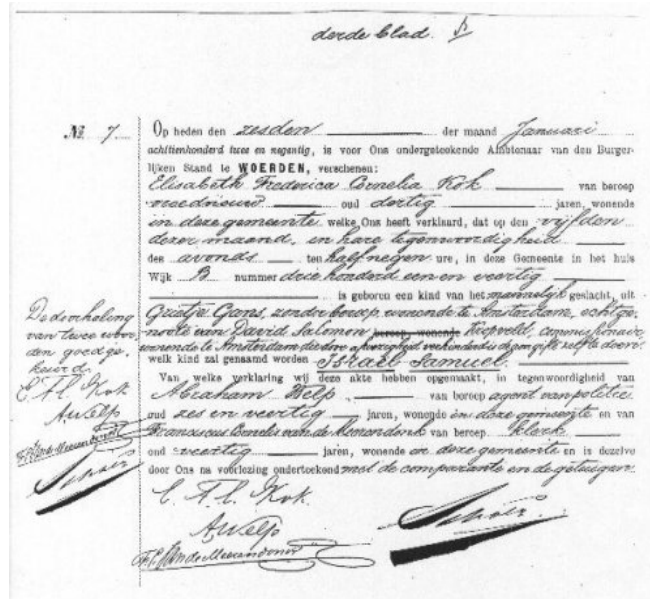 derde blad.
№ 7
Op heden den zesden der maand Januari
achttienhonderd twee en negentig, is voor Ons ondergeteekende Ambtenaar van den Burger-
lijken Stand te WOERDEN, verschenen:
Elisabeth Frederica Cornelia Kok van beroep
vroedvrouw oud dertig jaren, wonende
in deze gemeente welke Ons heeft verklaard, dat op den vijfden
dezer maand, in hare tegenwoordigheid
des avonds ten half negen ure, in deze Gemeente in het huis
Wijk B nummer drie honderd een en veertig
is geboren een kind van het mannelijk geslacht, uit
Grietje Gans, zonder beroep, wonende te Amsterdam, echtge-
noote van David Salomon beroep, wonende Kopveld, commissionair,
wonende te Amsterdam die door afwezigheid verhinderd is de aangifte zelf te doen
welk kind zal genaamd worden Israël Samuel.
Van welke verklaring wij deze akte hebben opgemaakt, in tegenwoordigheid van
Abraham Welp van beroep agent van politie
oud zes en veertig jaren, wonende in deze gemeente en van
Franciscus Cornelis van de Meerendonk van beroep klerk
oud veertig jaren, wonende in deze gemeente en is dezelve
door Ons na voorlezing onderteekend met de comparante en de getuigen.
De doorhaling
van twee woor-
den goedge-
keurd.
E. F. C. Kok
A Welp
F. C. van de Meerendonk
E. F. C. Kok.
A Welp
F. C. van de Meerendonk